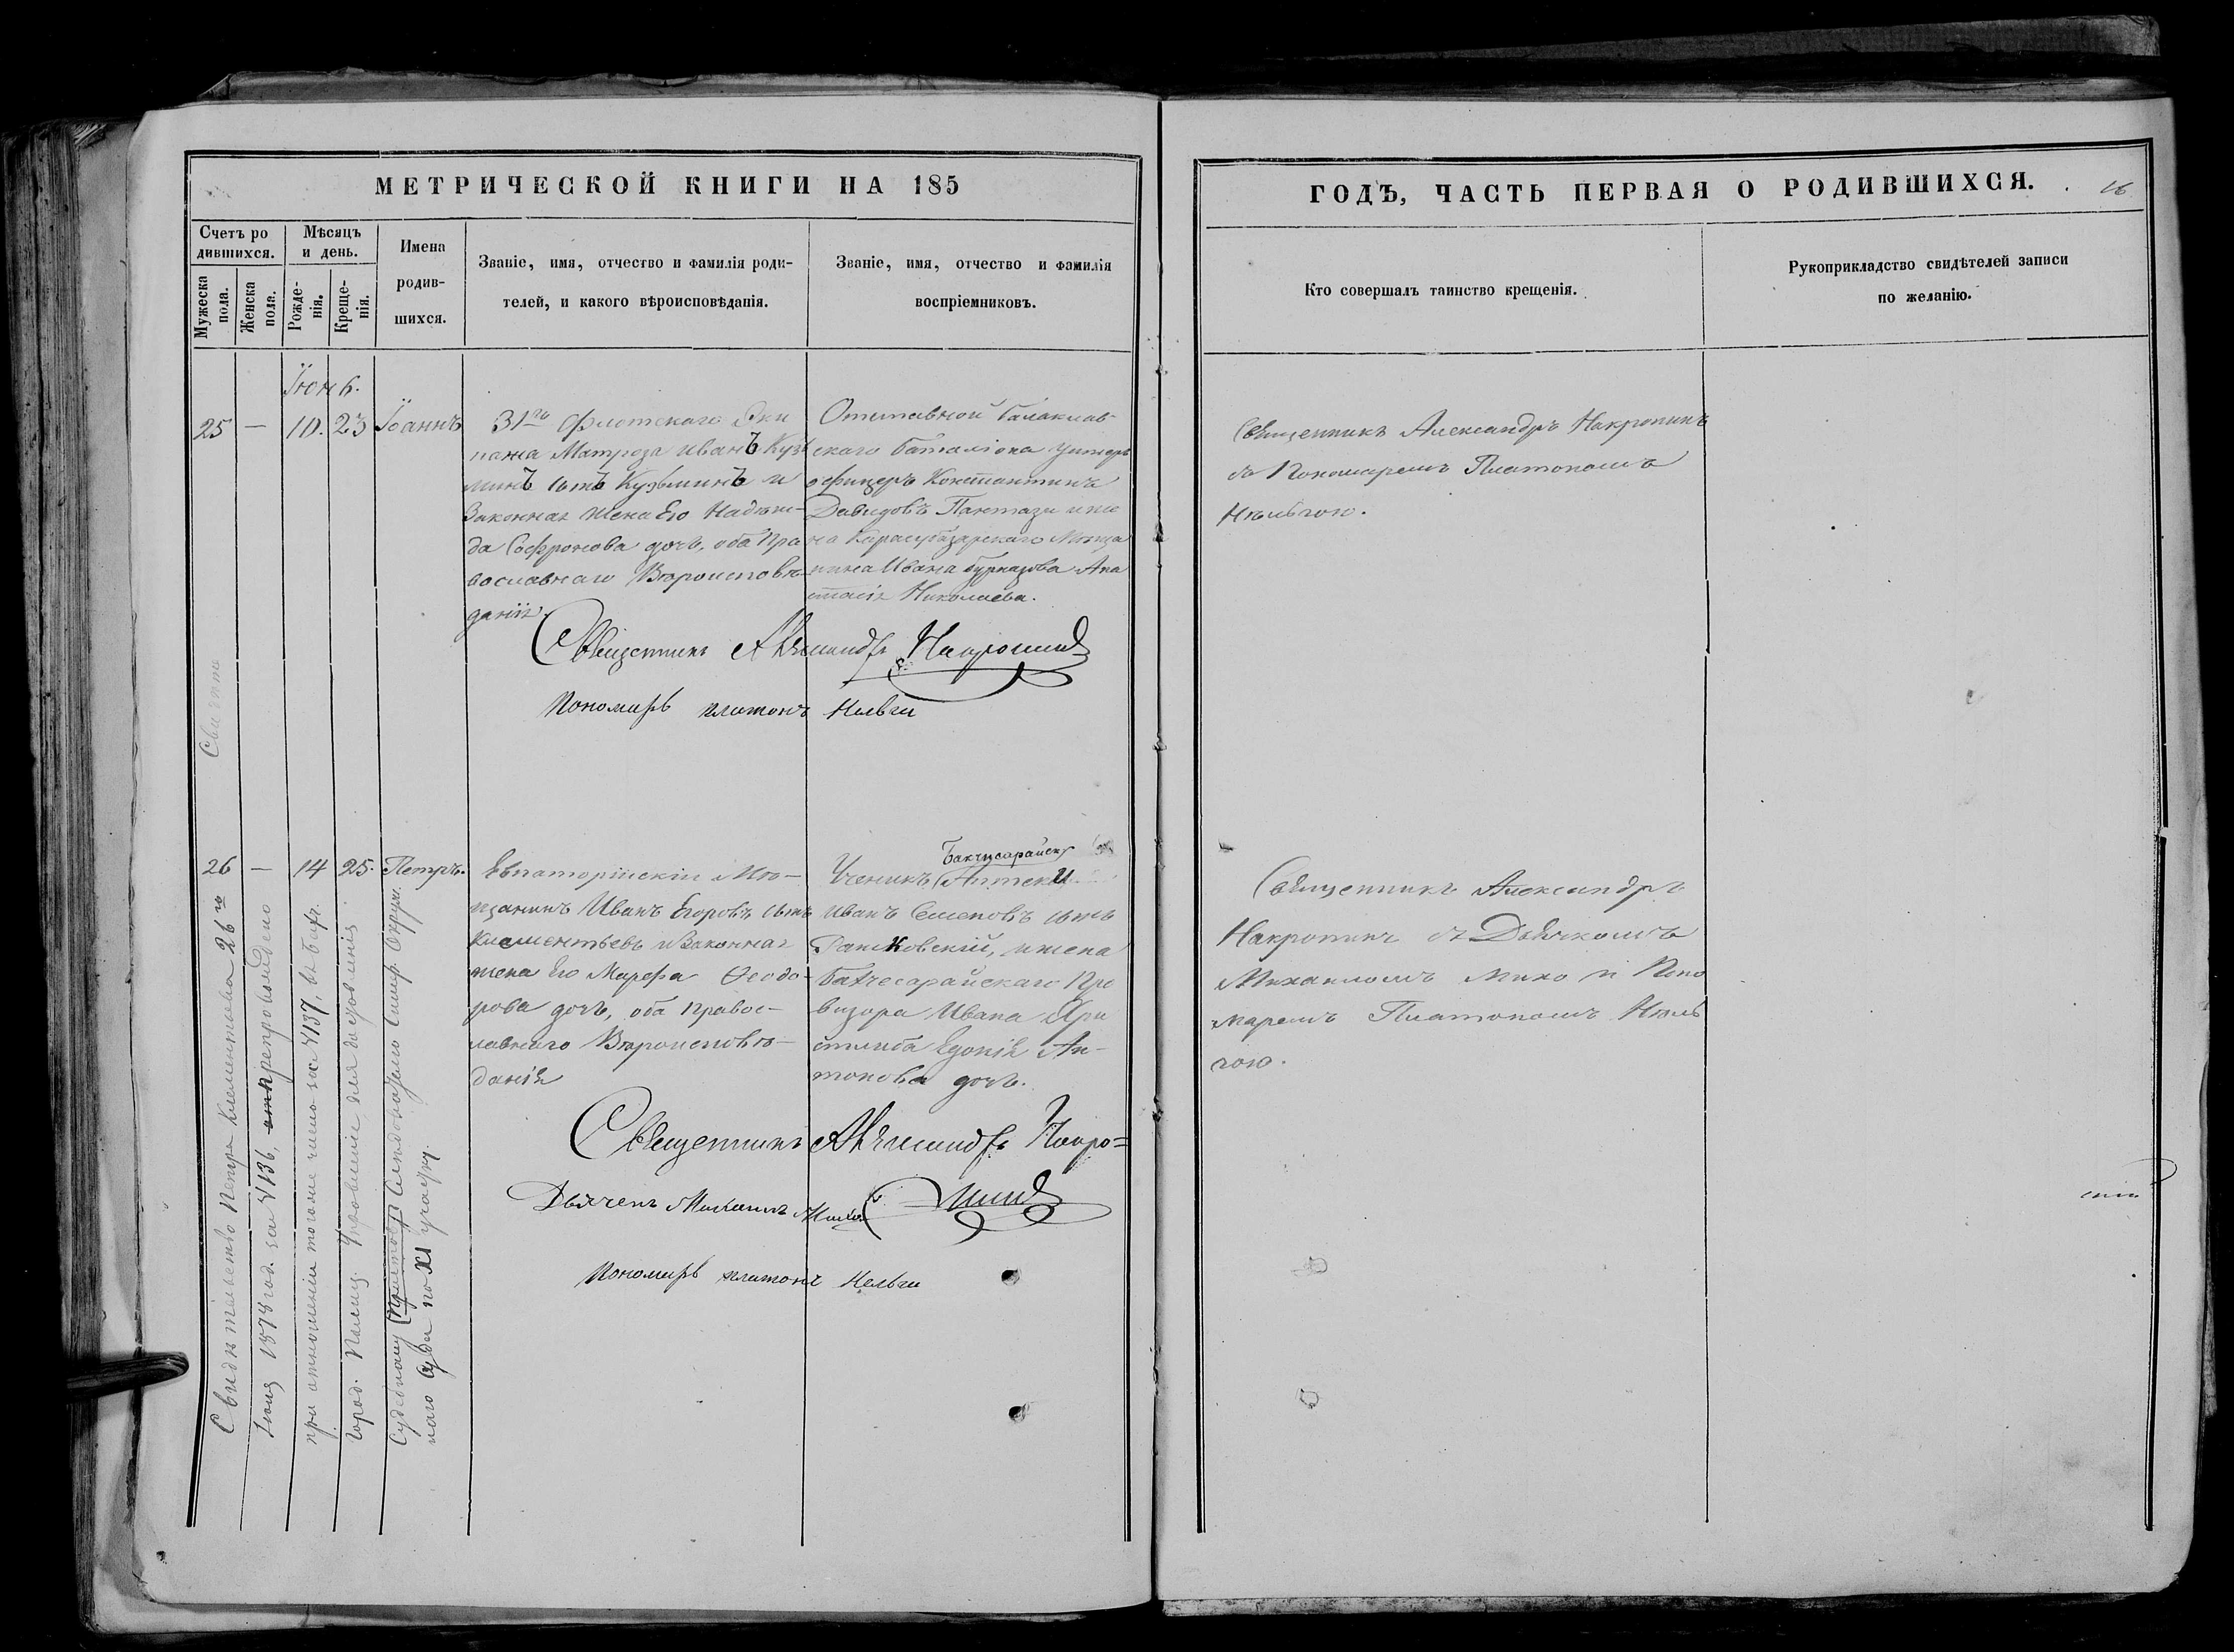 МЕТРИЧЕСКОЙ КНИГИ НА 185
Счетъ ро
дившихся.
Мужеска
пола.
Женска
пола.
Мѣсяцъ
и день.
Рожде-
нія.
Креще-
нія.
Имена
родив-
шихся.
Званіе, имя, отчество и фамилія роди-
телей, и какого вѣроисповѣданія.
Званіе, имя, отчество и фамилія
воспріемниковъ.
Іюнь.
25 — 10. 23 Іоаннъ
31го Флотскаго Эки
пажа Матроза Иванъ Кузь
минъ сынъ Кузьминъ и
Законная жена Его Надеж-
да Софронова дочь, оба Пра
вославнаго Вѣроисповѣ-
данія.
Отставной Балаклав-
скаго Баталіона Унтеръ
офицеръ Константинъ
Давидовъ Пантази и же
на Карасубазарскаго Мѣща
нина Ивана Бурназова Ана
стасія Николаева.
Священникъ Александръ Накропинъ
Пономарь Платонъ Нельги
26 — 14 25. Петръ.
Евпаторійскій Мѣ-
щанинъ Иванъ Егоровъ сынъ
Клементьевъ и Законная
жена Его Марфа Ѳеодо-
рова дочь, оба Правос-
лавнаго Вѣроисповѣ-
данія
Бакчисарайск
Ученикъ Аптеки
Иванъ Семеновъ сынъ
Рашковскій, и жена
Бахчесарайскаго Про
визора Ивана
Ан-
тонова дочь.
Священникъ Александръ Накро=
пинъ
Дьячекъ Михаилъ Михо
Пономарь Платонъ Нельги
Свидѣтельство Петра Клементьева 26го
Іюня 1878 год. за № 136, препровождено
при отношеніи того же числа за № 137, въ
Город. Полиц. Управленіе для
Судебному Приставу Симфер. Окруж.
наго Суда по XI участку.
ГОДЪ, ЧАСТЬ ПЕРВАЯ О РОДИВШИХСЯ.
16
Кто совершалъ таинство крещенія.
Рукоприкладство свидѣтелей записи
по желанію.
Священникъ Александръ Накропинъ
съ Пономаремъ Платономъ
Нѣльгою.
Священникъ Александръ
Накропинъ съ Дьячкомъ
Михаиломъ Михо и Поно
маремъ Платономъ Нѣль
гою.